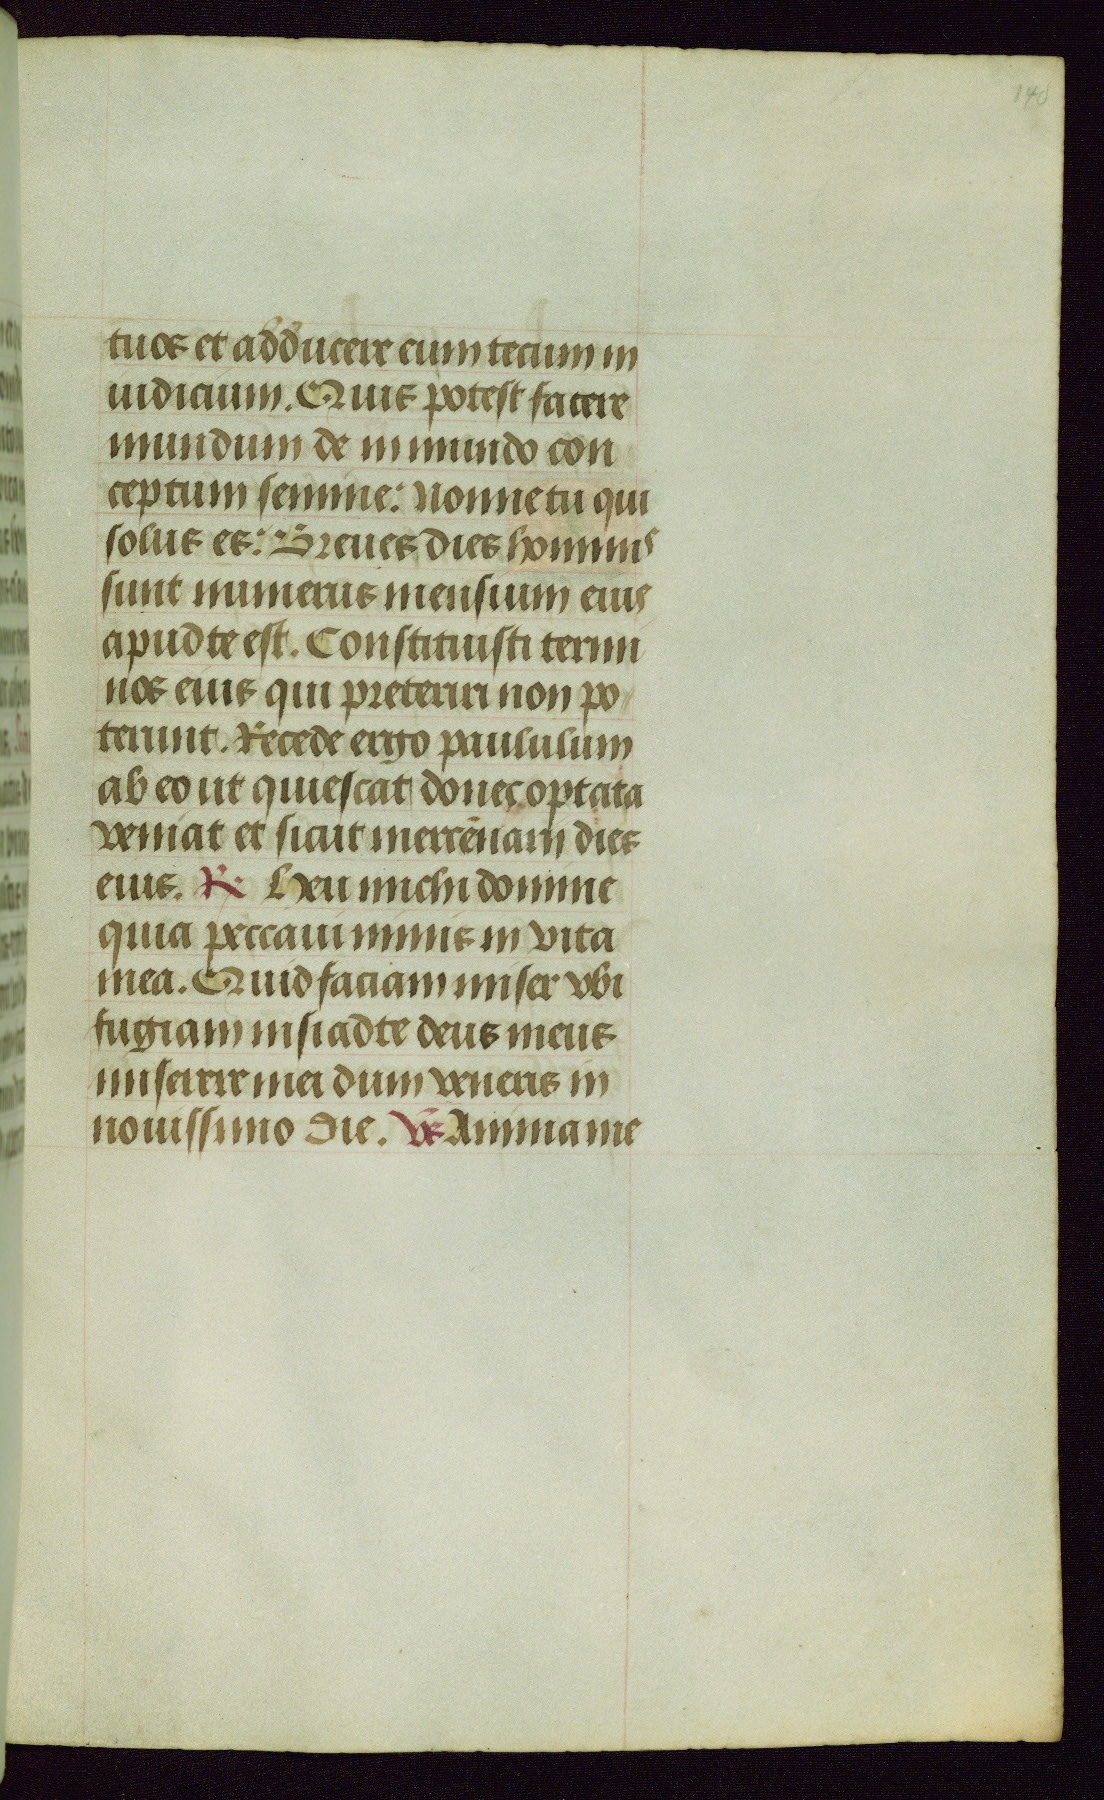 148
tuos et adducere eum tecum in
iudicium. Quis potest facere
mundum de inmundo con
ceptum semine: Nonne tu qui
solus es: Breues dies hominis
sunt numerus mensium eius
apud te est. Constituisti termi
nos eius qui preteriri non po
terunt. Recede ergo paululum
ab eo ut quiescat donec optata
veniat et sicut mercēnarii dies
eius. R. Heu michi domine
quia peccaui nimis in vita
mea. Quid faciam miser vbi
fugiam nisi ad te deus meus
miserere mei dum veneris in
nouissimo die. Vs Anima me